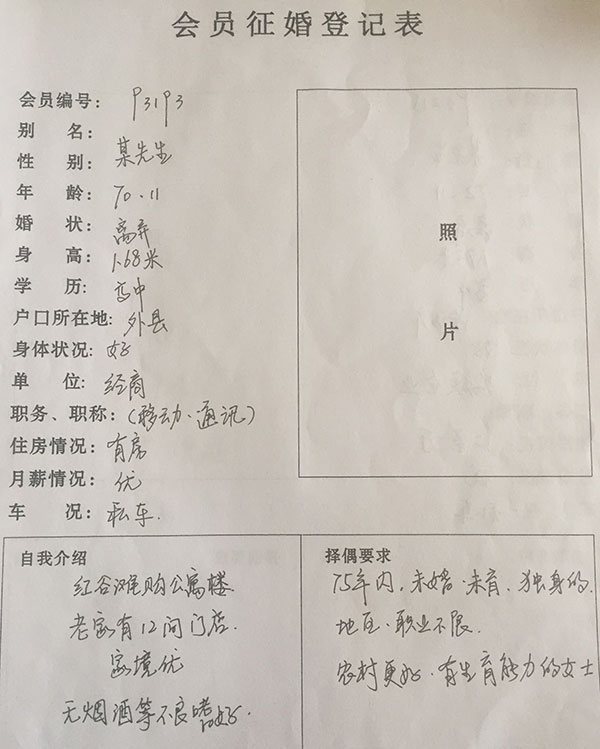 会员征婚登记表
会员编号: P31P3
别 名:
性 别: 某先生
年 龄: 70.11
婚 状: 离异
身 高: 1.68米
学 历: 高中
户口所在地: 外县
身体状况: 好
单 位: 经商
职务、职称: (移动·通讯)
住房情况: 有房
月薪情况: 优
车 况: 私车.
照
片
自我介绍
红谷滩购公寓楼
老家有12间门店.
家境优
无烟酒等不良嗜好.
择偶要求
75年内,未婚·未育.独身的.
地区·职业不限.
农村更好.有生育能力的女士